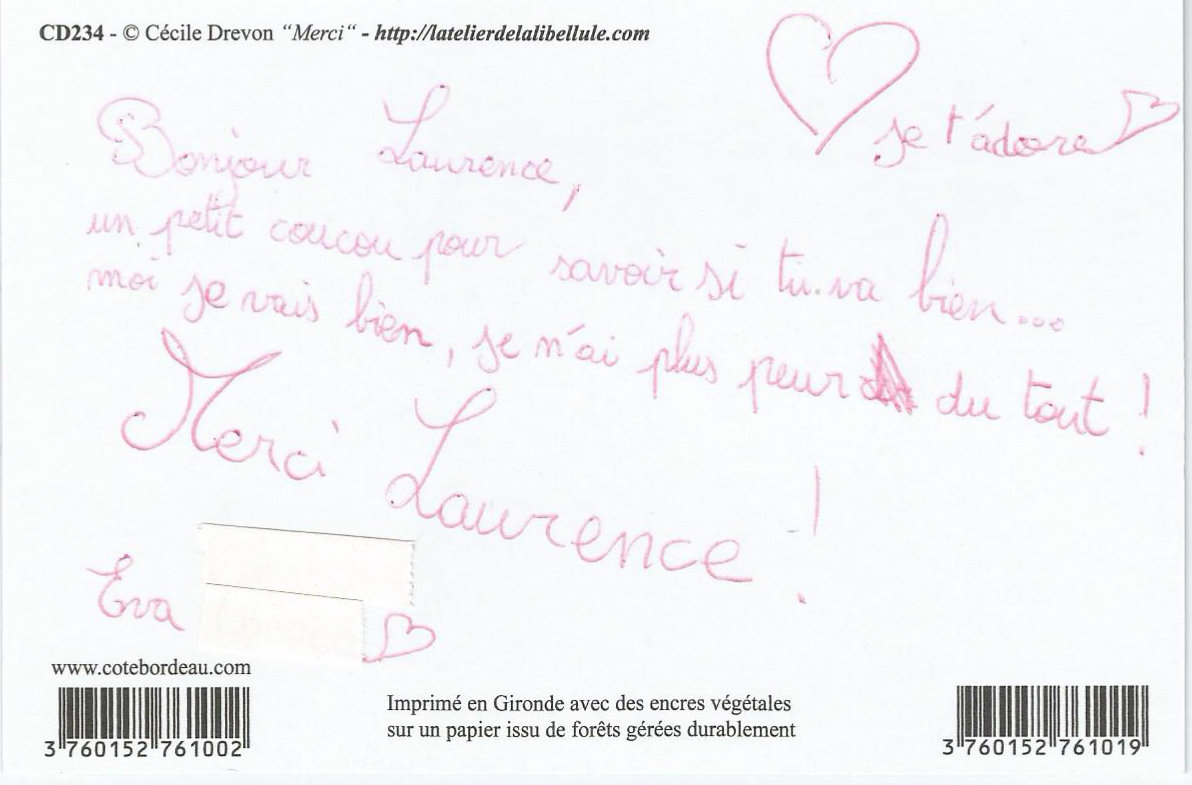 CD234 - © Cécile Drevon “Merci“ - http://latelierdelalibellule.com
je t'adore
Bonjour Laurence,
un petit coucou pour savoir si tu va bien...
moi je vais bien, je n'ai plus peur du tout !
Merci Laurence !
Eva
www.cotebordeau.com
3 760152 761002
Imprimé en Gironde avec des encres végétales
sur un papier issu de forêts gérées durablement
3 760152 761019